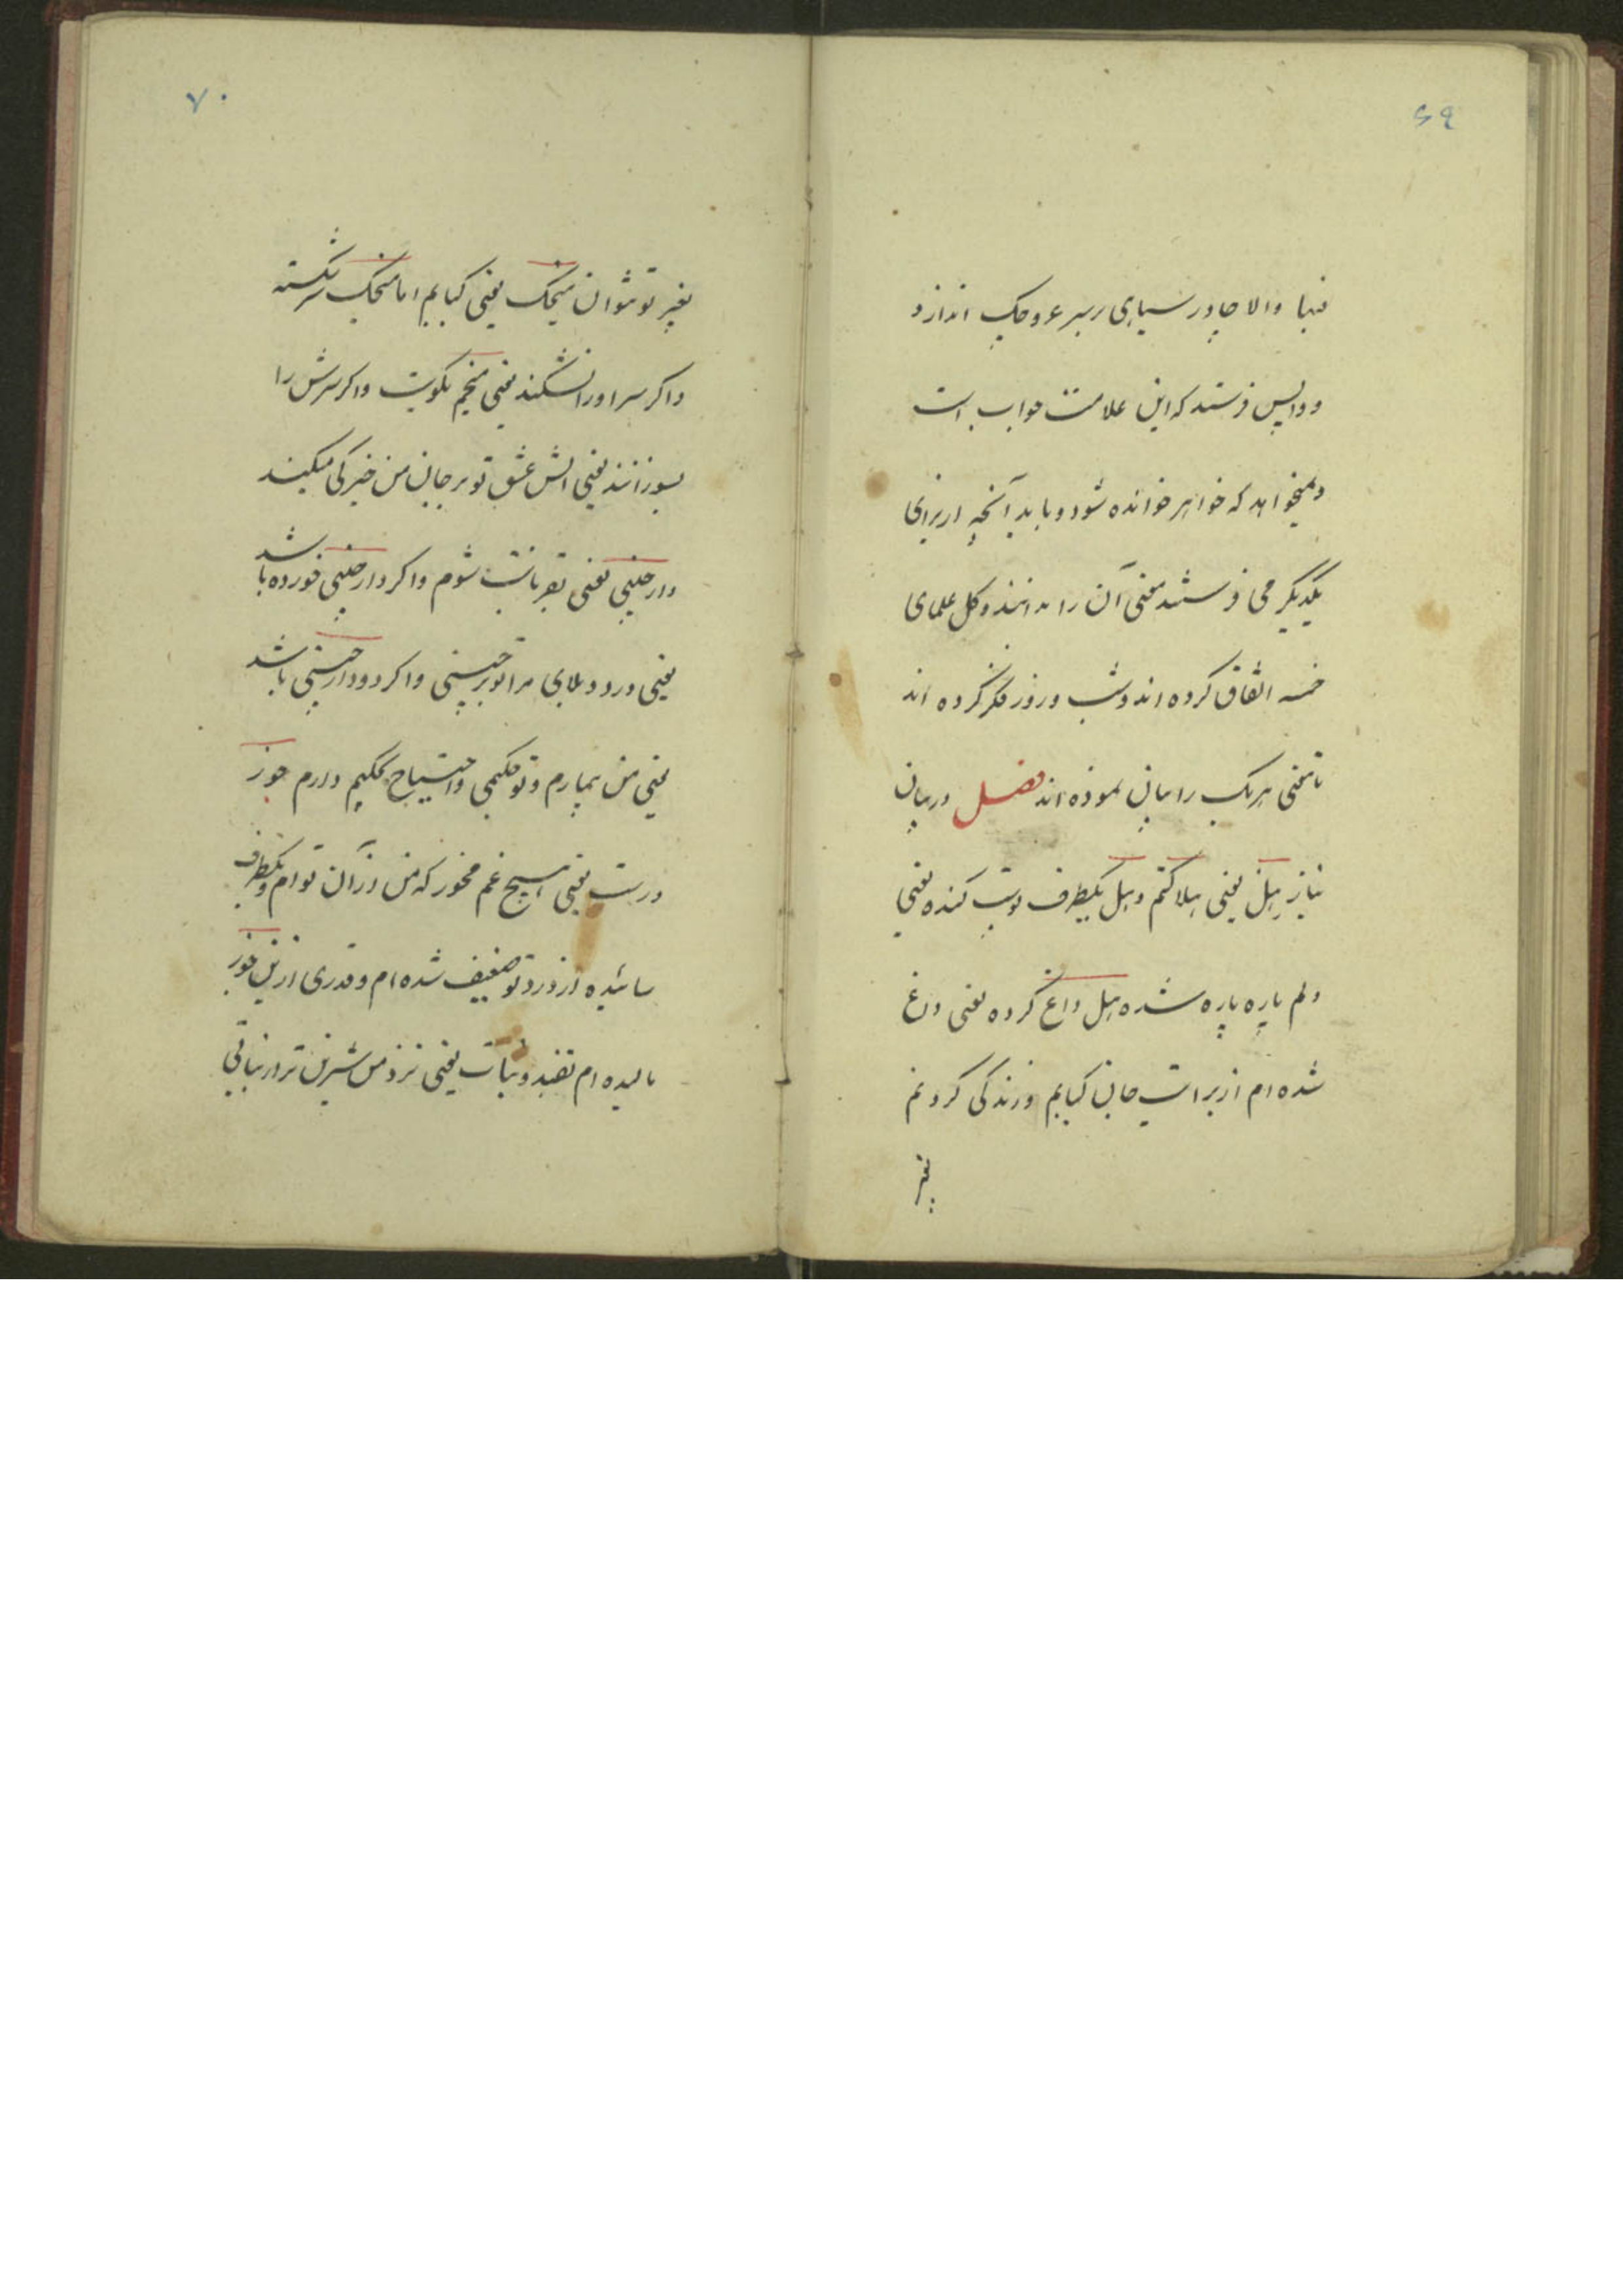 ۶۹
فبها والا چادر سیاهی بر سر عروسک اندازد
و واپس فرستد که این علامت جواب است
و میخواهد که خواهر خوانده شود و باید آنچه از برای
یکدیگر می فرستند معنی آن را بدانند و کل علمای
خمسه اتفاق کرده اند و شب و روز فکر کرده اند
تا معنی هر یک را بیان نموده اند فصل در بیان
نیاز هل یعنی هلاکتم و هل یکطرف پوست کنده یعنی
دلم پاره پاره شده هل داغ کرده یعنی داغ
شده ام از برایت جان کبابم و زندگی کردنم
بغیر
۷۰
بغیر تو نتوان میخک یعنی کبابم اما میخک سرشکسته
و اگر سر او را نشکنند یعنی میخم بکویت و اگر سرش را
بسوزانند یعنی آتش عشق تو بر جان من خیرگی میکند
دارچینی یعنی بقربانت شوم و اگر دارچینی خورده باشد
یعنی درد و بلای مرا تو برچینی و اگر دو دارچینی باشد
یعنی من بیمارم و تو حکیمی و احتیاج بحکیم دارم جوز
درست یعنی هیچ غم مخور که من از آن توام و یکطرف
سائیده از درد تو ضعیف شده ام و قدری ازین جوز
مالیده ام بقند و نبات یعنی نزد من شیرین تر از نباتی